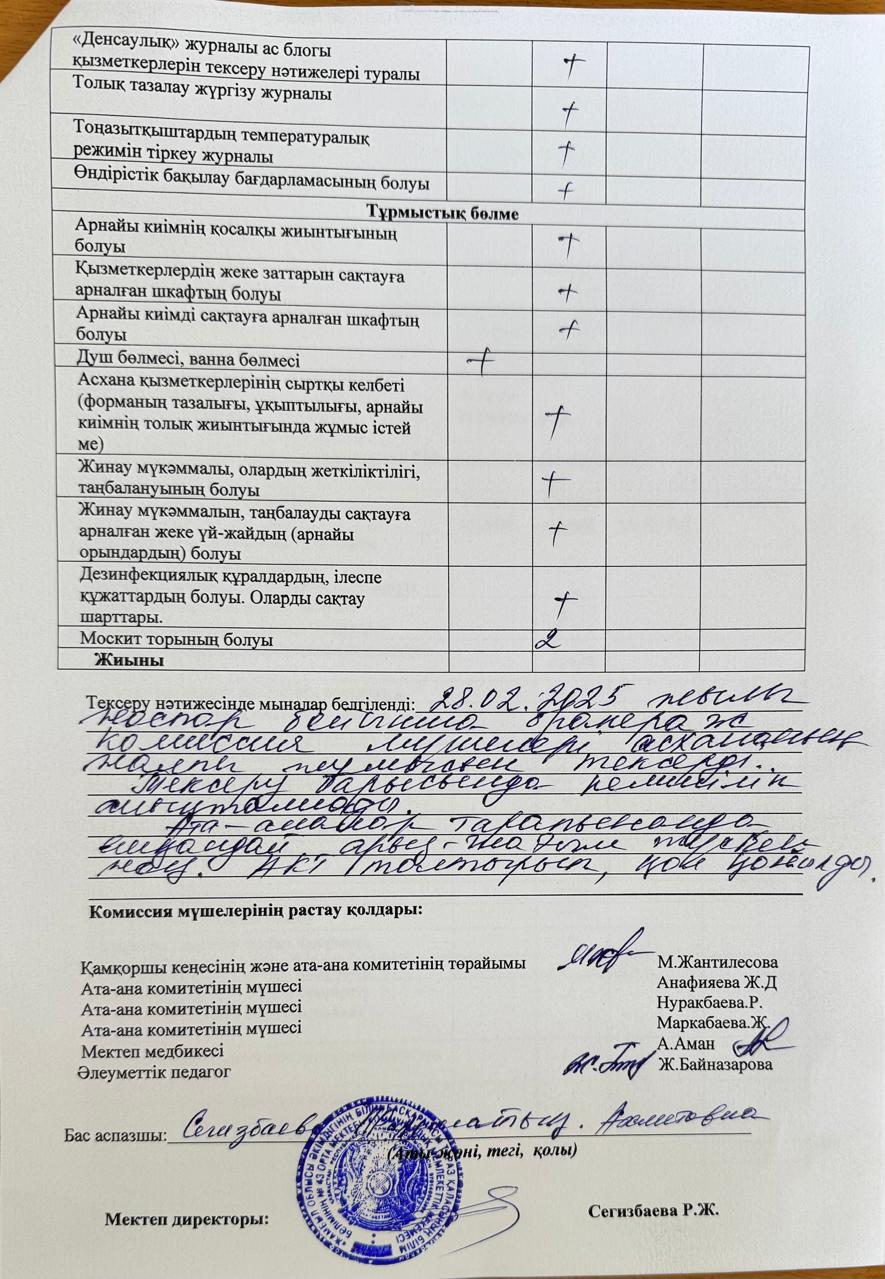 «Денсаулық» журналы ас блогы
қызметкерлерін тексеру нәтижелері туралы +
Толық тазалау жүргізу журналы +
Тоңазытқыштардың температуралық
режимін тіркеу журналы +
Өндірістік бақылау бағдарламасының болуы +
Тұрмыстық бөлме
Арнайы киімнің қосалқы жиынтығының
болуы +
Қызметкерлердің жеке заттарын сақтауға
арналған шкафтың болуы +
Арнайы киімді сақтауға арналған шкафтың
болуы +
Душ бөлмесі, ванна бөлмесі +
Асхана қызметкерлерінің сыртқы келбеті
(форманың тазалығы, ұқыптылығы, арнайы
киімнің толық жиынтығында жұмыс істей
ме) +
Жинау мүкәммалы, олардың жеткіліктілігі,
таңбалануының болуы +
Жинау мүкәммалын, таңбалауды сақтауға
арналған жеке үй-жайдың (арнайы
орындардың) болуы +
Дезинфекциялық құралдардың, ілеспе
құжаттардың болуы. Оларды сақтау
шарттары. +
Москит торының болуы 2
Жиыны
Тексеру нәтижесінде мыналар белгіленді: 28.02.2025 жылы
жоспар бойынша бракераж
комиссия мүшелері асхананың
жалпы жұмысын тексерді.
Тексеру барысында
Ата-аналар тарапынанда
ешқандай арыз-шағым түскен
жоқ. АКТ толтырып, қол қойылды.
Комиссия мүшелерінің растау қолдары:
Қамқоршы кеңесінің және ата-ана комитетінің төрайымы М.Жантилесова
Ата-ана комитетінің мүшесі Анафияева Ж.Д
Ата-ана комитетінің мүшесі Нуракбаева.Р.
Ата-ана комитетінің мүшесі Маркабаева.Ж.
Мектеп медбикесі А.Аман
Әлеуметтік педагог Ж.Байназарова
Бас аспазшы: Сегизбаева
(Аты-жөні, тегі, қолы)
Мектеп директоры: Сегизбаева Р.Ж.